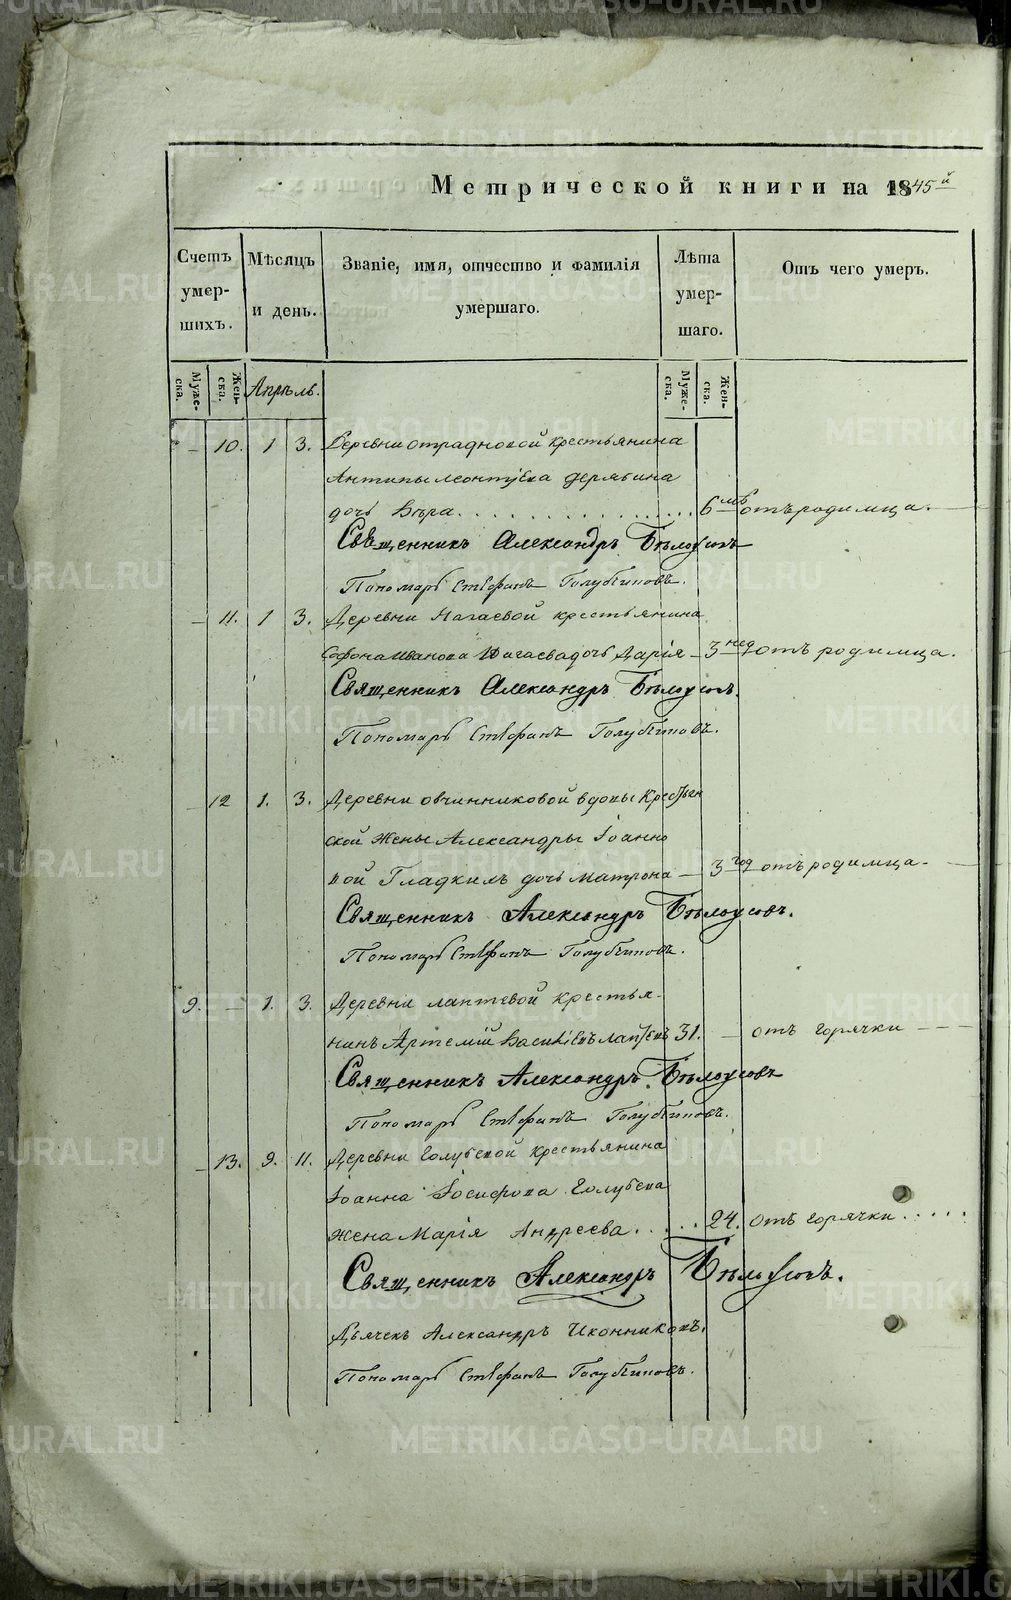 METRIKI.GASO-URAL.RU
Метрической книги на 1845й
Счетъ умер-шихъ.
Мѣсяцъ и день.
Званіе, имя, отчество и фамилія умершаго.
Лѣта умер-шаго.
Отъ чего умеръ.
Муже-ска.
Жен-ска.
Апрѣль.
Муже-ска.
Жен-ска.
– 10. 1 3. Деревни Отрадновой крестьянина
Антипы Леонтіева Дерябина
дочь Вѣра. . . . . . . . . . . . . . . 6 мѣ отъ родимца.
Священникъ Александръ Бѣлоусовъ
Пономарь Стефанъ Голубчиковъ.
– 11. 1 3. Деревни Нагаевой крестьянина
Софона Иванова Нагаева дочь Дарія – 3 нед отъ родимца.
Священникъ Александръ Бѣлоусовъ.
Пономарь Стефанъ Голубчиковъ.
– 12 1. 3. Деревни Овчинниковой вдовы крестьян
ской жены Александры Іоанно
вой Гладкихъ дочь Матрона – 3 год отъ родимца.
Священникъ Александръ Бѣлоусовъ.
Пономарь Стефанъ Голубчиковъ.
9. – 1. 3. Деревни Лаптевой крестья-
нинъ Артемій Васильевъ Лаптевъ 31. – отъ горячки – – –
Священникъ Александръ Бѣлоусовъ
Пономарь Стефанъ Голубчиковъ.
– 13. 9. 11. Деревни Голубевой крестьянина
Іоанна Іосифова Голубева
жена Марія Андреева. . . . . 24. отъ горячки . . . . .
Священникъ Александръ Бѣлоусовъ.
Дьячекъ Александръ Иконниковъ.
Пономарь Стефанъ Голубчиковъ.